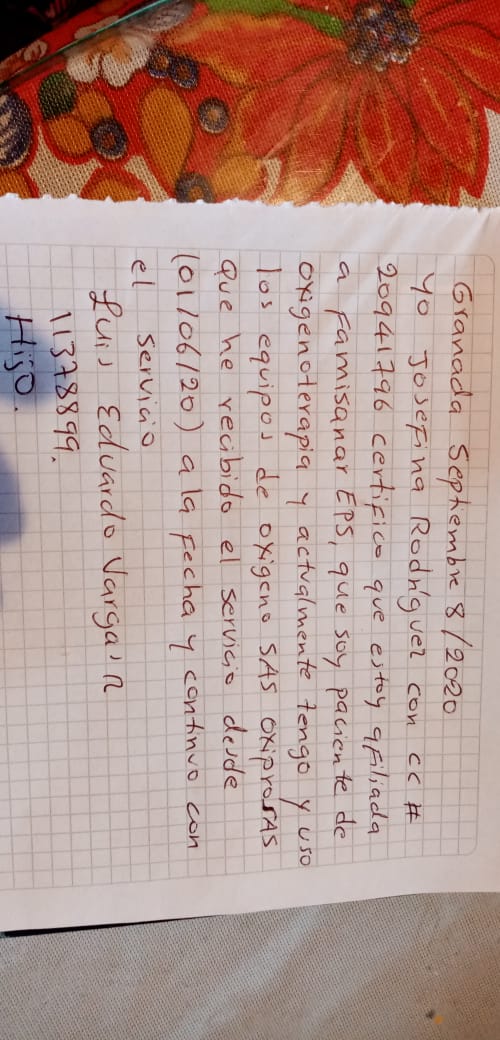 Granada Septiembre 8/2020
Yo Josefina Rodríguez con cc #
20941796 certifico que estoy afiliada
a Famisanar EPS, que soy paciente de
oxigenoterapia y actualmente tengo y uso
los equipos de oxigeno SAS oxiproSAS
que he recibido el servicio desde
(01/06/20) a la fecha y continuo con
el servicio
Luis Eduardo Vargas R
11378899.
Hijo.